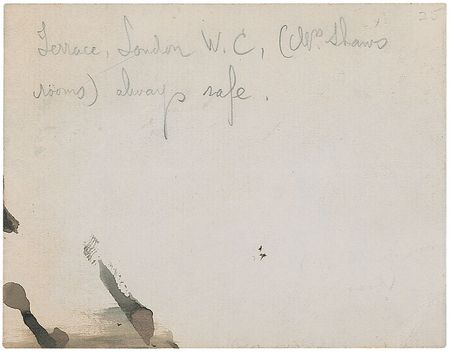 25
Terrace, London W.C, (Mrs Shaw's
rooms) always safe.